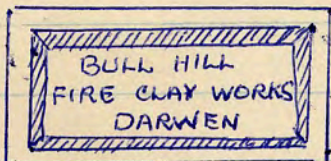 BULL HILL
FIRE CLAY WORKS
DARWEN